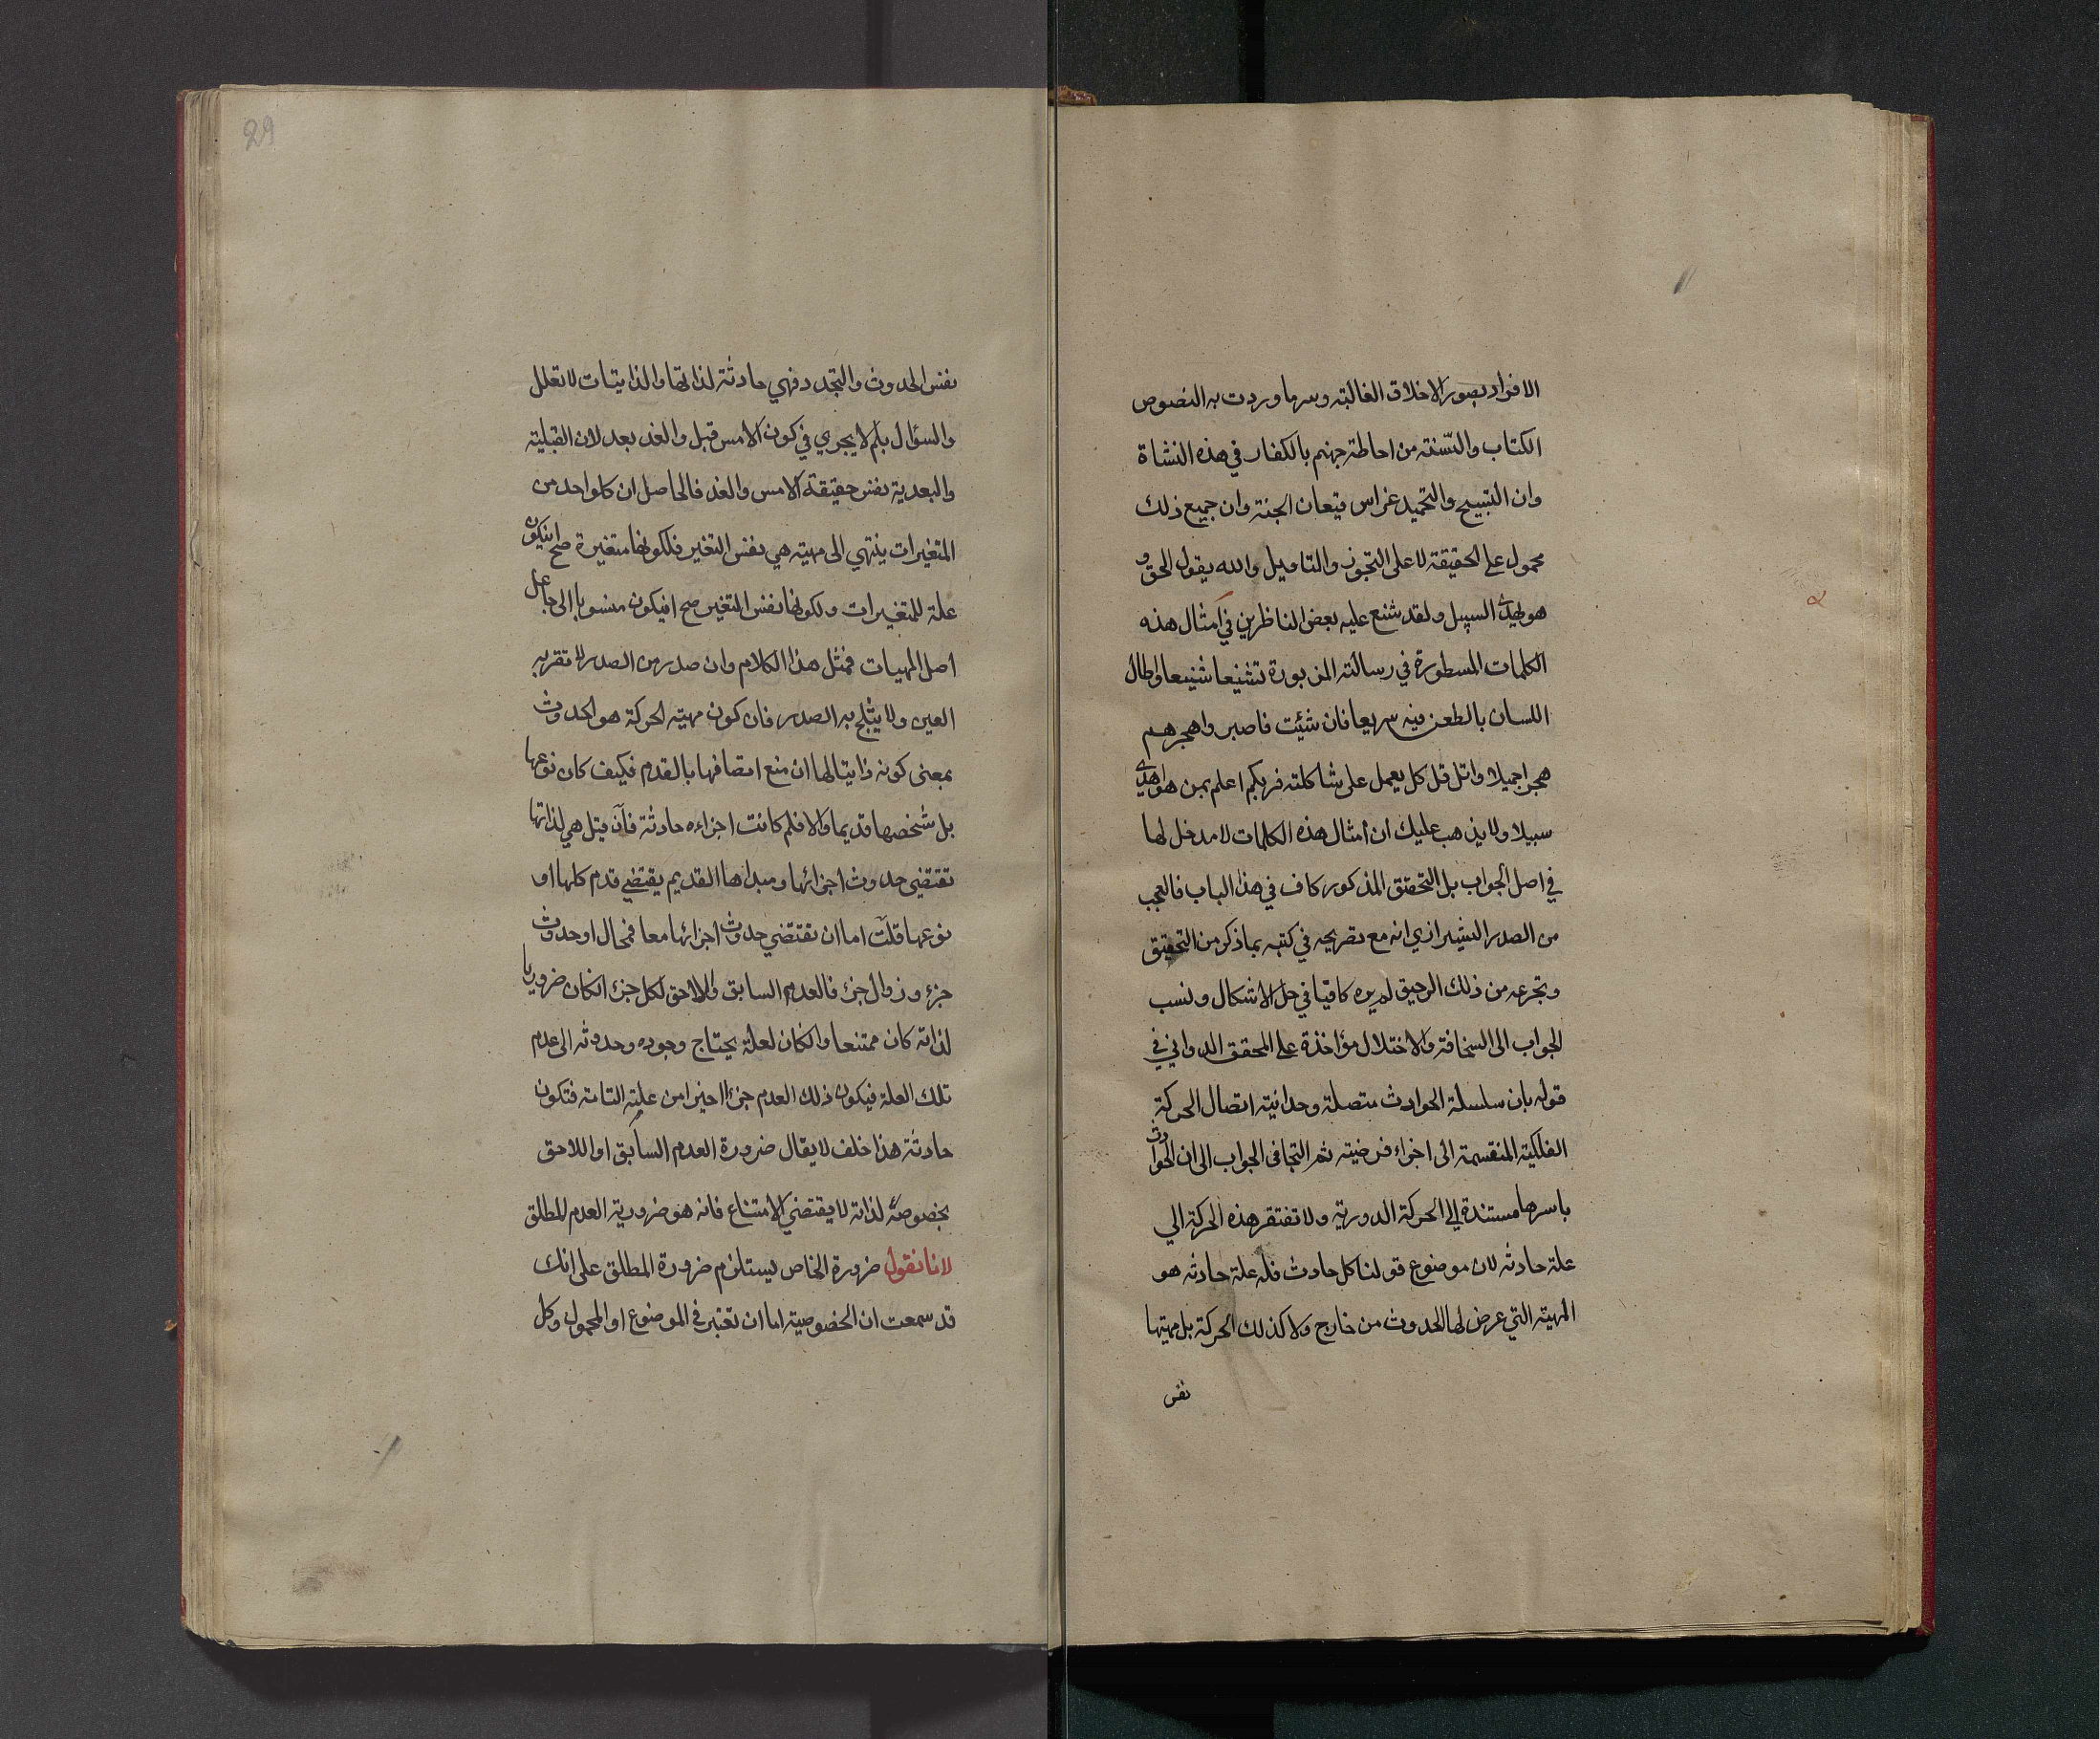 الافراد بصور الاخلاق الغالبة وسر ما وردت به النصوص
الكتاب والسّنة من احاطة جهنم بالكفار في هذه النشاة
وان التسبيح والتحميد غراس قيعان الجنة وان جميع ذلك
محمول على الحقيقة لا على التجوز والتاويل والله يقول الحق و
هو يهدى السبيل ولقد شنع عليه بعض الناظرين في امثال هذه
الكلمات المسطورة في رسالته المزبورة تشنيعا شنيعا واطال
اللسان بالطعن فيه سريعا فان شئت فاصبر واهجرهم
هجرا جميلا واتل قل كل يعمل على شاكلته فربكم اعلم بمن هو اهدى
سبيلا ولا يذهب عليك ان امثال هذه الكلمات لا مدخل لها
في اصل الجواب بل التحقيق المذكور كاف في هذا الباب فالعجب
من الصدر الشيرازي انه مع تصريحه في كتبه بما ذكر من التحقيق
وتجرعه من ذلك الرحيق لم يره كافيا في حل الاشكال ونسب
الجواب الى السخافة والاختلال مؤاخذة على المحقق الدواني في
قوله بان سلسلة الحوادث متصلة وحدانية اتصال الحركة
الفلكية المنقسمة الى اجزاء فرضية ثم التجا في الجواب الى ان الحوادث
باسرها مستندة الى الحركة الدورية ولا تفتقر هذه الحركة الي
علة حادثه لان موضوع قولنا كل حادث فله علة حادثه هو
المهية التي عرض لها الحدوث من خارج ولا كذلك الحركة بل مهيتها
نفس
29
نفس الحدوث والتجدد فهي حادثة لذاتها والذاتيات لا تعلل
والسؤال بلم لا يجري في كون الامس قبل والغد بعد لان القبلية
والبعدية نفس حقيقة الامس والغد فالحاصل ان كل واحد من
المتغيرات ينتهي الى مهية هي نفس التغير فلكونها متغيرة صح ان يكون
علة للمتغيرات ولكونها نفس التغير صح ان يكون منسوبا الى جاعل
اصل المهيات فمثل هذا الكلام وان صدر من الصدر لا تقر به
العين ولا يثلج به الصدر فان كون مهية الحركة هو الحدوث
بمعنى كونه ذاتيا لها ان منع اتصافها بالقدم فكيف كان نوعها
بل شخصها قديما والا فلم كانت اجزاءه حادثة فان قيل هي لذاتها
تقتضي حدوث اجزائها ومبداها القديم يقتضي قدم كلها او
نوعها قلت اما ان تقتضي حدوث اجزائها معا فمحال او حدوث
جزء وزوال جزء فالعدم السابق واللاحق لكل جزء ان كان ضروريا
لذاته كان ممتنعا وان كان لعلة يحتاج وجوده وحدوثه الى عدم
تلك العلة فيكون ذلك العدم جزءا اخيرا من علته التامة فتكون
حادثة هذا خلف لا يقال ضرورة العدم السابق او اللاحق
بخصوصه لذاته لا يقتضي الامتناع فانه هو ضرورية العدم المطلق
لانا نقول ضرورة الخاص يستلزم ضرورة المطلق على انك
قد سمعت ان الخصوصية اما ان تعتبر في الموضوع او المحمول وكل